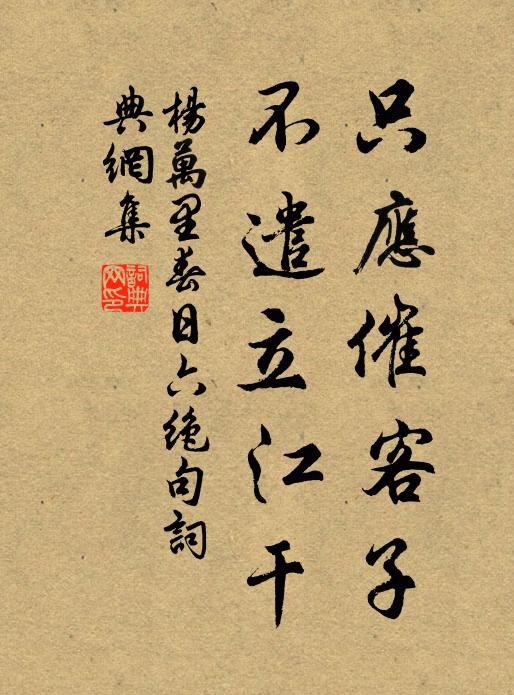 只應催客子
不遣立江干
楊萬里春日六絕句詞
典網集
詞典
网印